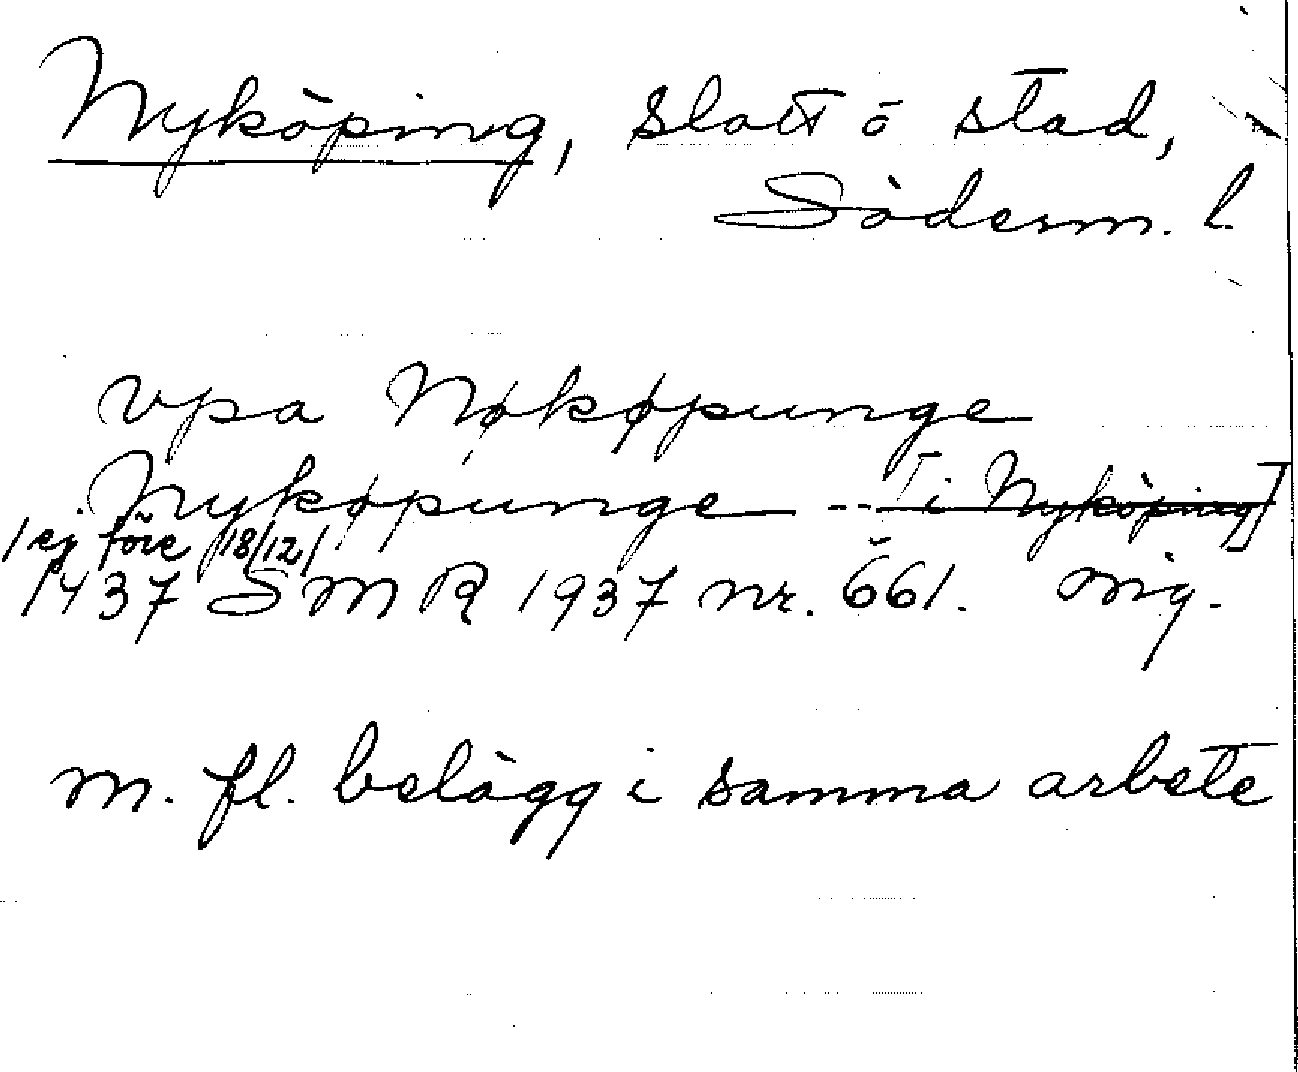 Nyköping, slott o stad,
Söderm. l.
vpa Nøkøpunge
Nykøpunge -- [i Nyköping]
/ej före 18/12/
1437 SMR 1937 nr. 661. orig.
m. fl. belägg i samma arbete